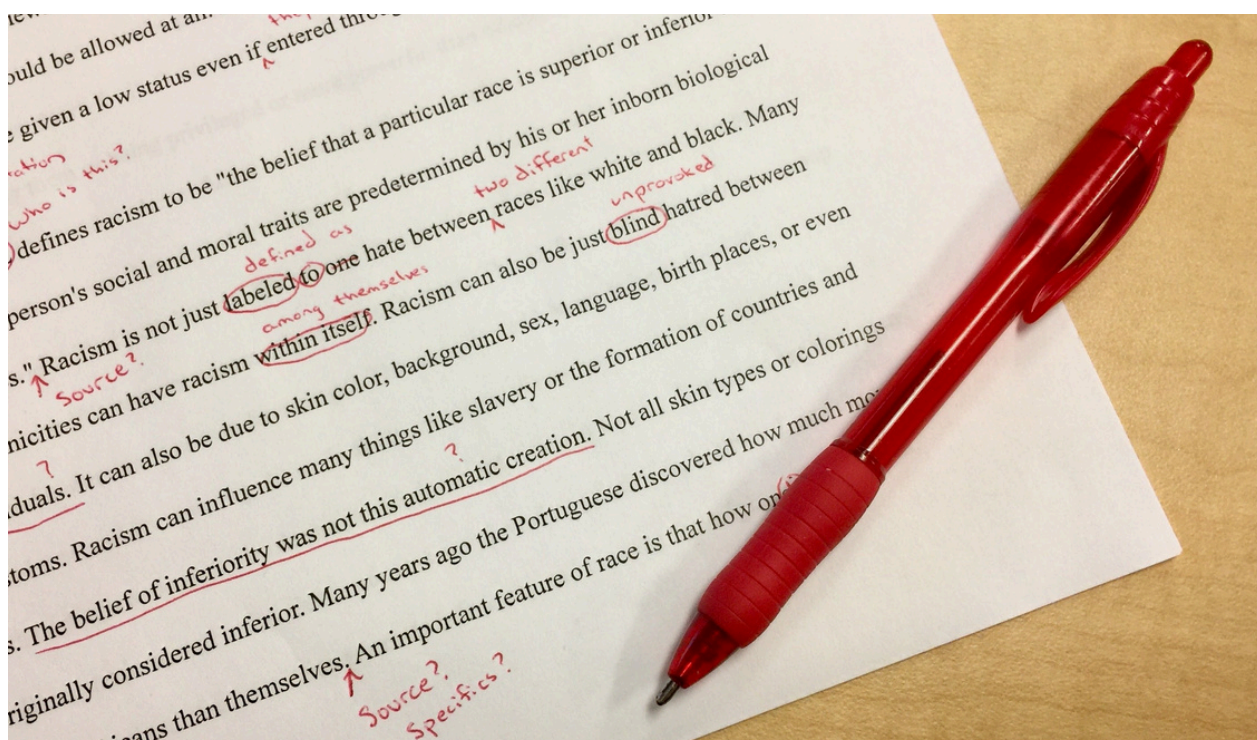 ould be allowed at
given a low status even if entered
ation
who is this?
defines racism to be "the belief that a particular race is superior or
person's social and moral traits are predetermined by his or her inborn biological
two different
defined as
s." Racism is not just labeled to one hate between races like white and black. Many
Source?
among themselves
unprovoked
nicities can have racism within itself. Racism can also be just blind hatred between
?
duals. It can also be due to skin color, background, sex, language, birth places, or even
stoms. Racism can influence many things like slavery or the formation of countries and
?
s. The belief of inferiority was not this automatic creation. Not all skin types or colorings
riginally considered inferior. Many years ago the Portuguese discovered how much
than themselves. An important feature of race is that how
Source?
Specifics?